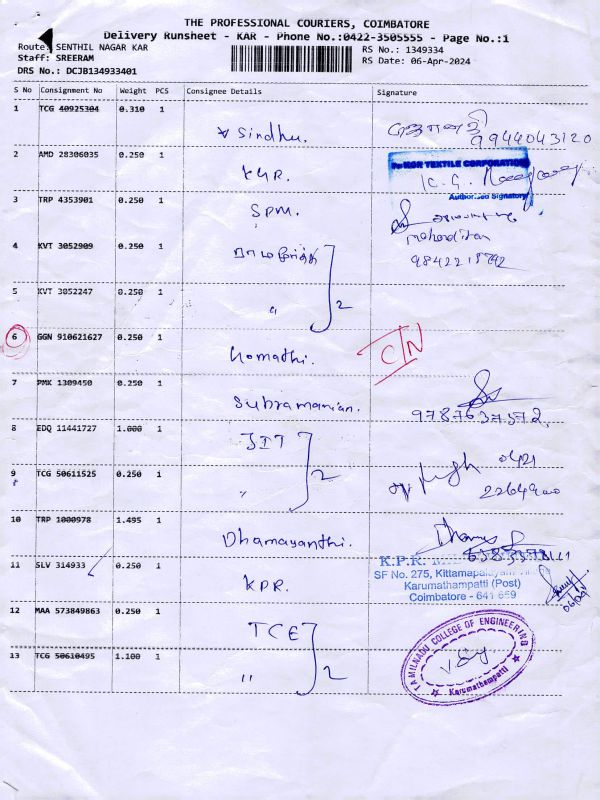 THE PROFESSIONAL COURIERS, COIMBATORE
Delivery Runsheet - KAR - Phone No.:0422-3505555 - Page No.:1
Route: SENTHIL NAGAR KAR
RS No.: 1349334
Staff: SREERAM
RS Date: 06-Apr-2024
DRS No.: DCJB134933401
S No Consignment No Weight PCS Consignee Details Signature
1 TCG 40925304 0.310 1 Sindhu. 9944043120
2 AMD 28306035 0.250 1 KGR. For KGR TEXTILE CORPORATION
K. G.
Authorised Signatory
3 TRP 4353901 0.250 1 SPM.
4 KVT 3052909 0.250 1
5 KVT 3052247 0.250 1 " 2
6 GGN 910621627 0.250 1 Gomathi. C/N
7 PMK 1309450 0.250 1 Subramanian.
9787637572
8 EDQ 11441727 1.000 1 JIT
9 TCG 50611525 0.250 1 " 2 0421
2264900
10 TRP 1000978 1.495 1 Dhamayanthi.
11 SLV 314933 0.250 1 KPR. K.P.R.
SF No. 275, Kittampalayam
Karumathampatti (Post)
Coimbatore - 641 659
06/04
12 MAA 573849863 0.250 1 TCE
13 TCG 50610495 1.100 1 " 2
TAMILNADU COLLEGE OF ENGINEERING
Karumathampatti